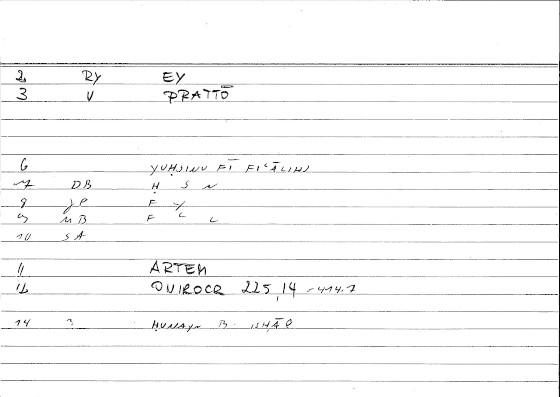 2 RY EY
3 V PRATTŌ
6 YUḤSINU FĪ FIʿĀLIHI
7 DB Ḥ S N
8 JP F Y
9 MB F ʿ L
10 SA
11 ARTEM
12 QUIROCR 225,14 - 414.1
14 3 ḤUNAYN B. ISḤĀQ